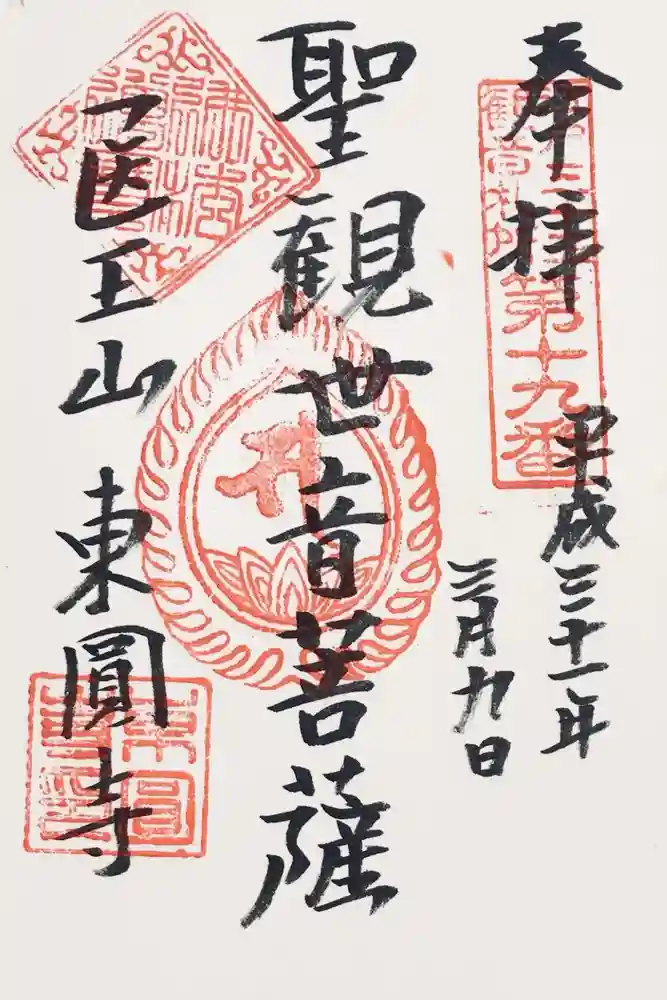 奉拝
第十九番
平成三十一年
三月九日
聖観世音菩薩
医王山 東圓寺